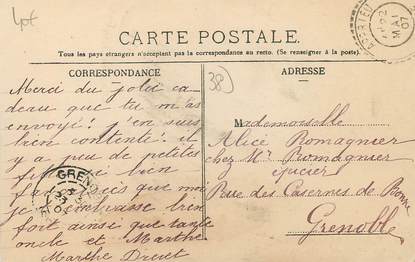 4pt
CARTE POSTALE.
Tous les pays étrangers n'acceptent pas la correspondance au recto. (Se renseigner à la poste).
CORRESPONDANCE
Merci du jolie ca-
deau que tu m'as
envoyé! j'en suis
bien contente! il
y a peu de petites
bien
que moi
je t'embrasse bien
fort ainsi que tante
oncle et Marthe
Marthe Drevet
GRENOBLE
38
22
MAI
07
ADRESSE
Mademoiselle
Alice Romagnier
chez Mr Romagnier
épicier
Rue des Casernes de Bonne
Grenoble